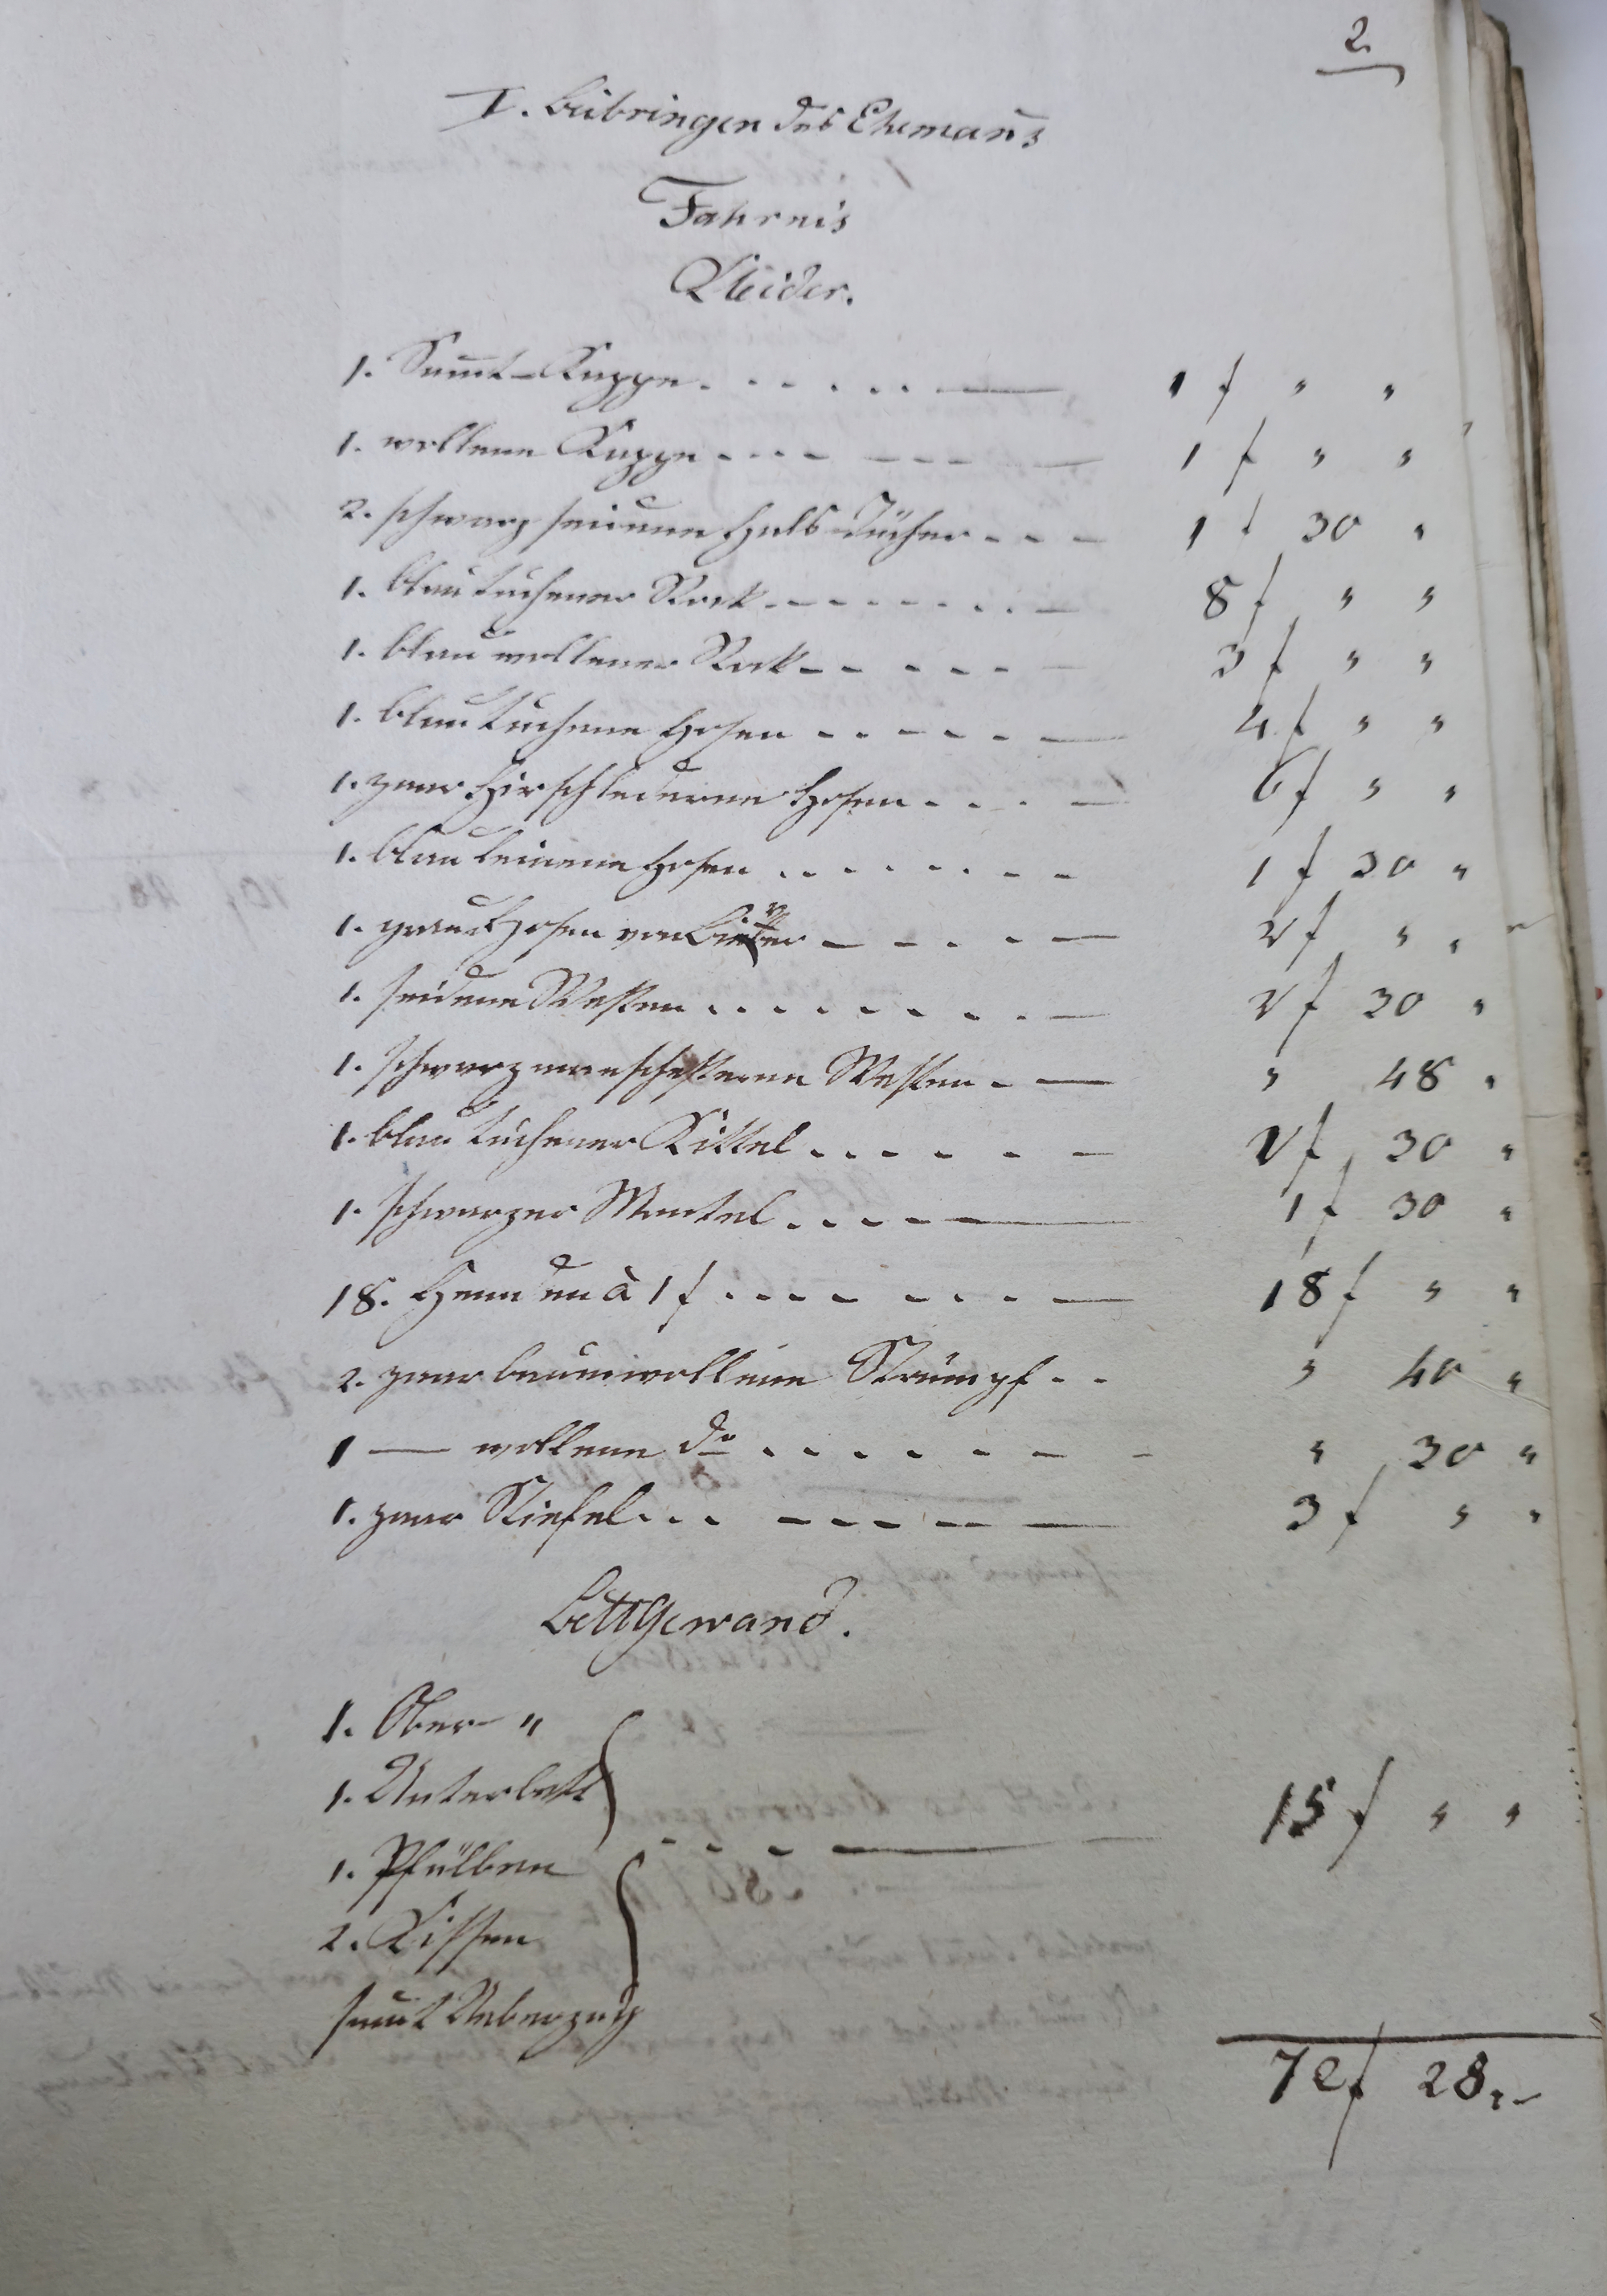 2.
I. Beibringen des Ehemann̄s
Fahrnis
Kleider.
1. Sam̄t-Kappe . . . . . . — 1 f " "
1. wollene Kappe . - - - - - - — 1 f " "
2. schwarz seidene Hals-Tücher - - - 1 f 30 "
1. blau tuchener Rock - - - - - . . — 8 f " "
1. blau wollener Rock - - - - - — 3 f " "
1. blau tuchene Hosen . . - - - — 4 f " "
1. paar Hirschlederne Hosen . . . — 6 f " "
1. blau leinene Hosen . . . . . . - - 1 f 30 "
1. graue Hosen von Bieber — - . - — 2 f " "
1. seidene Westen . . . . . . . . — 2 f 30 "
1. schwarz manschesterne Westen . — " 48 "
1. blau tuchener Kittel . . . . - - 2 f 30 "
1. schwarzer Mantel . . . - — 1 f 30 "
18. Hemden à 1 f . . . - - . - — 18 f " "
2. paar baumwollene Strümpf . . " 40 "
1 — wollene do . . . . . . - - " 30 "
1. paar Stiefel . . . - - - - — 3 f " "
Bettgewand.
1. Ober- "
1. Unterbett
15 f " "
1. Pfülben
2. Kissen
sam̄t Ueberzug
72 f 28. -